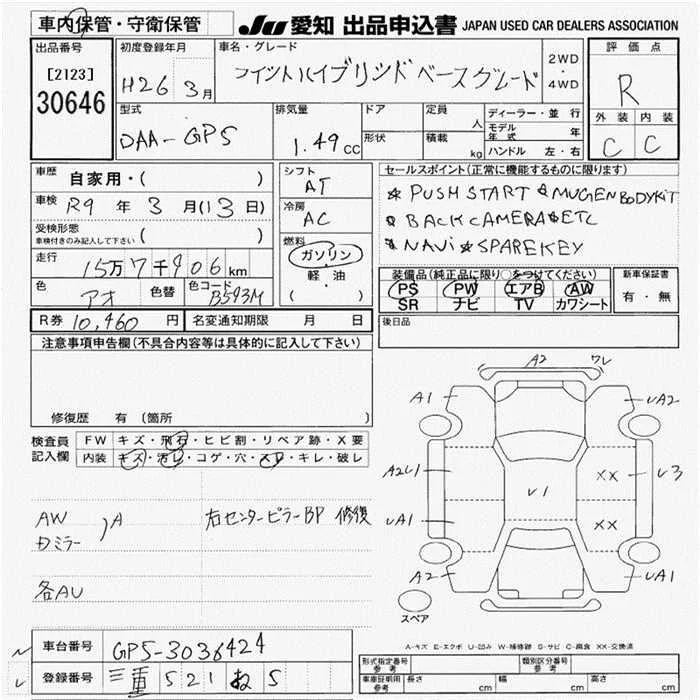 車内保管・守衛保管
JU 愛知 出品申込書 JAPAN USED CAR DEALERS ASSOCIATION
出品番号
[2123]
30646
初度登録年月
H26 3月
車名・グレード
フィットハイブリッドベースグレード
2WD
・
4WD
評価点
R
外装 内装
C C
型式
DAA-GP5
排気量
1.49cc
ドア
形状
定員 人
積載 kg
ディーラー・並行
モデル年式 年
ハンドル 左・右
車歴 自家用・( )
車検 R9 年 3 月(13日)
受検形態
車検付きのみ記入して下さい ( )
走行 15万7千906km
色 アオ 色替 色コード B593M
R券 10,460 円 名変通知期限 月 日
シフト
AT
冷房
AC
燃料
ガソリン
軽・油
( )
セールスポイント(正常に機能するものに限ります)
* PUSH START * MUGEN BODYKIT
* BACK CAMERA * ETC
* NAVi * SPAREKEY
装備品(純正品に限り○をつけてください)
PS PW エアB AW
SR ナビ TV カワシート
新車保証書
有・無
後日品
注意事項申告欄(不具合内容等は具体的に記入して下さい)
修復歴 有(箇所 )
検査員
記入欄
FW キズ・飛石・ヒビ割・リペア跡・X要
内装 キズ・汚レ・コゲ・穴・スレ・キレ・破レ
AW
ドミラー
)A
右センターピラーBP 修復
各AU
A2 ワレ
A1
UA2
A2U1
U1
XX
U3
UA1
XX
A2
UA1
スペア
A-キズ E-エクボ U-凹み W-補修跡 S-サビ C-腐食 XX-交換済
車台番号 GP5-3036424
登録番号 三重 521 ね 5
型式指定番号
参考
類別区分番号
参考
車庫証明用
参考
長さ cm 幅 cm 高さ cm